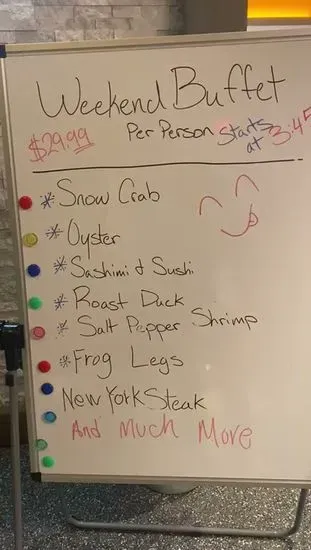 Weekend Buffet
$29.99 Per Person Starts at 3:45
* Snow Crab
* Oyster
* Sashimi & Sushi
* Roast Duck
* Salt Pepper Shrimp
* Frog Legs
New York Steak
And Much More